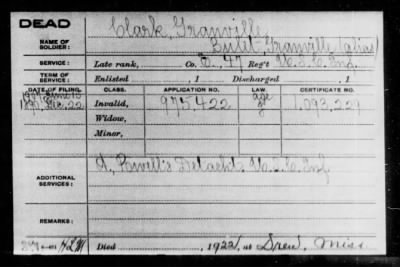 DEAD
NAME OF SOLDIER: Clark, Granville
Butit, Granville (alias)
SERVICE: Late rank, Co. E., 47 Reg't U.S.C. Inf.
TERM OF SERVICE: Enlisted , 1 Discharged , 1
DATE OF FILING. CLASS. APPLICATION NO. LAW. CERTIFICATE NO.
1890, Dec. 22 Invalid, 975,422 1,093,229
Widow,
Minor,
ADDITIONAL SERVICES: A, Powell's Detach't. U.S.C. Inf.
REMARKS:
Died , 1922, at Drew, Miss.